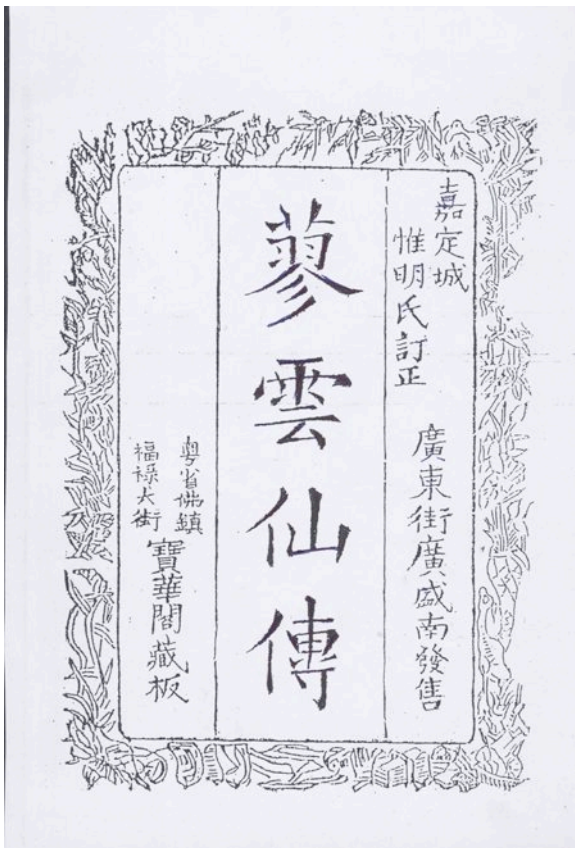 嘉定城
惟明氏訂正
廣東街廣盛南發售
蓼雲仙傳
粵省佛鎮
福祿大街
寶華閣藏板